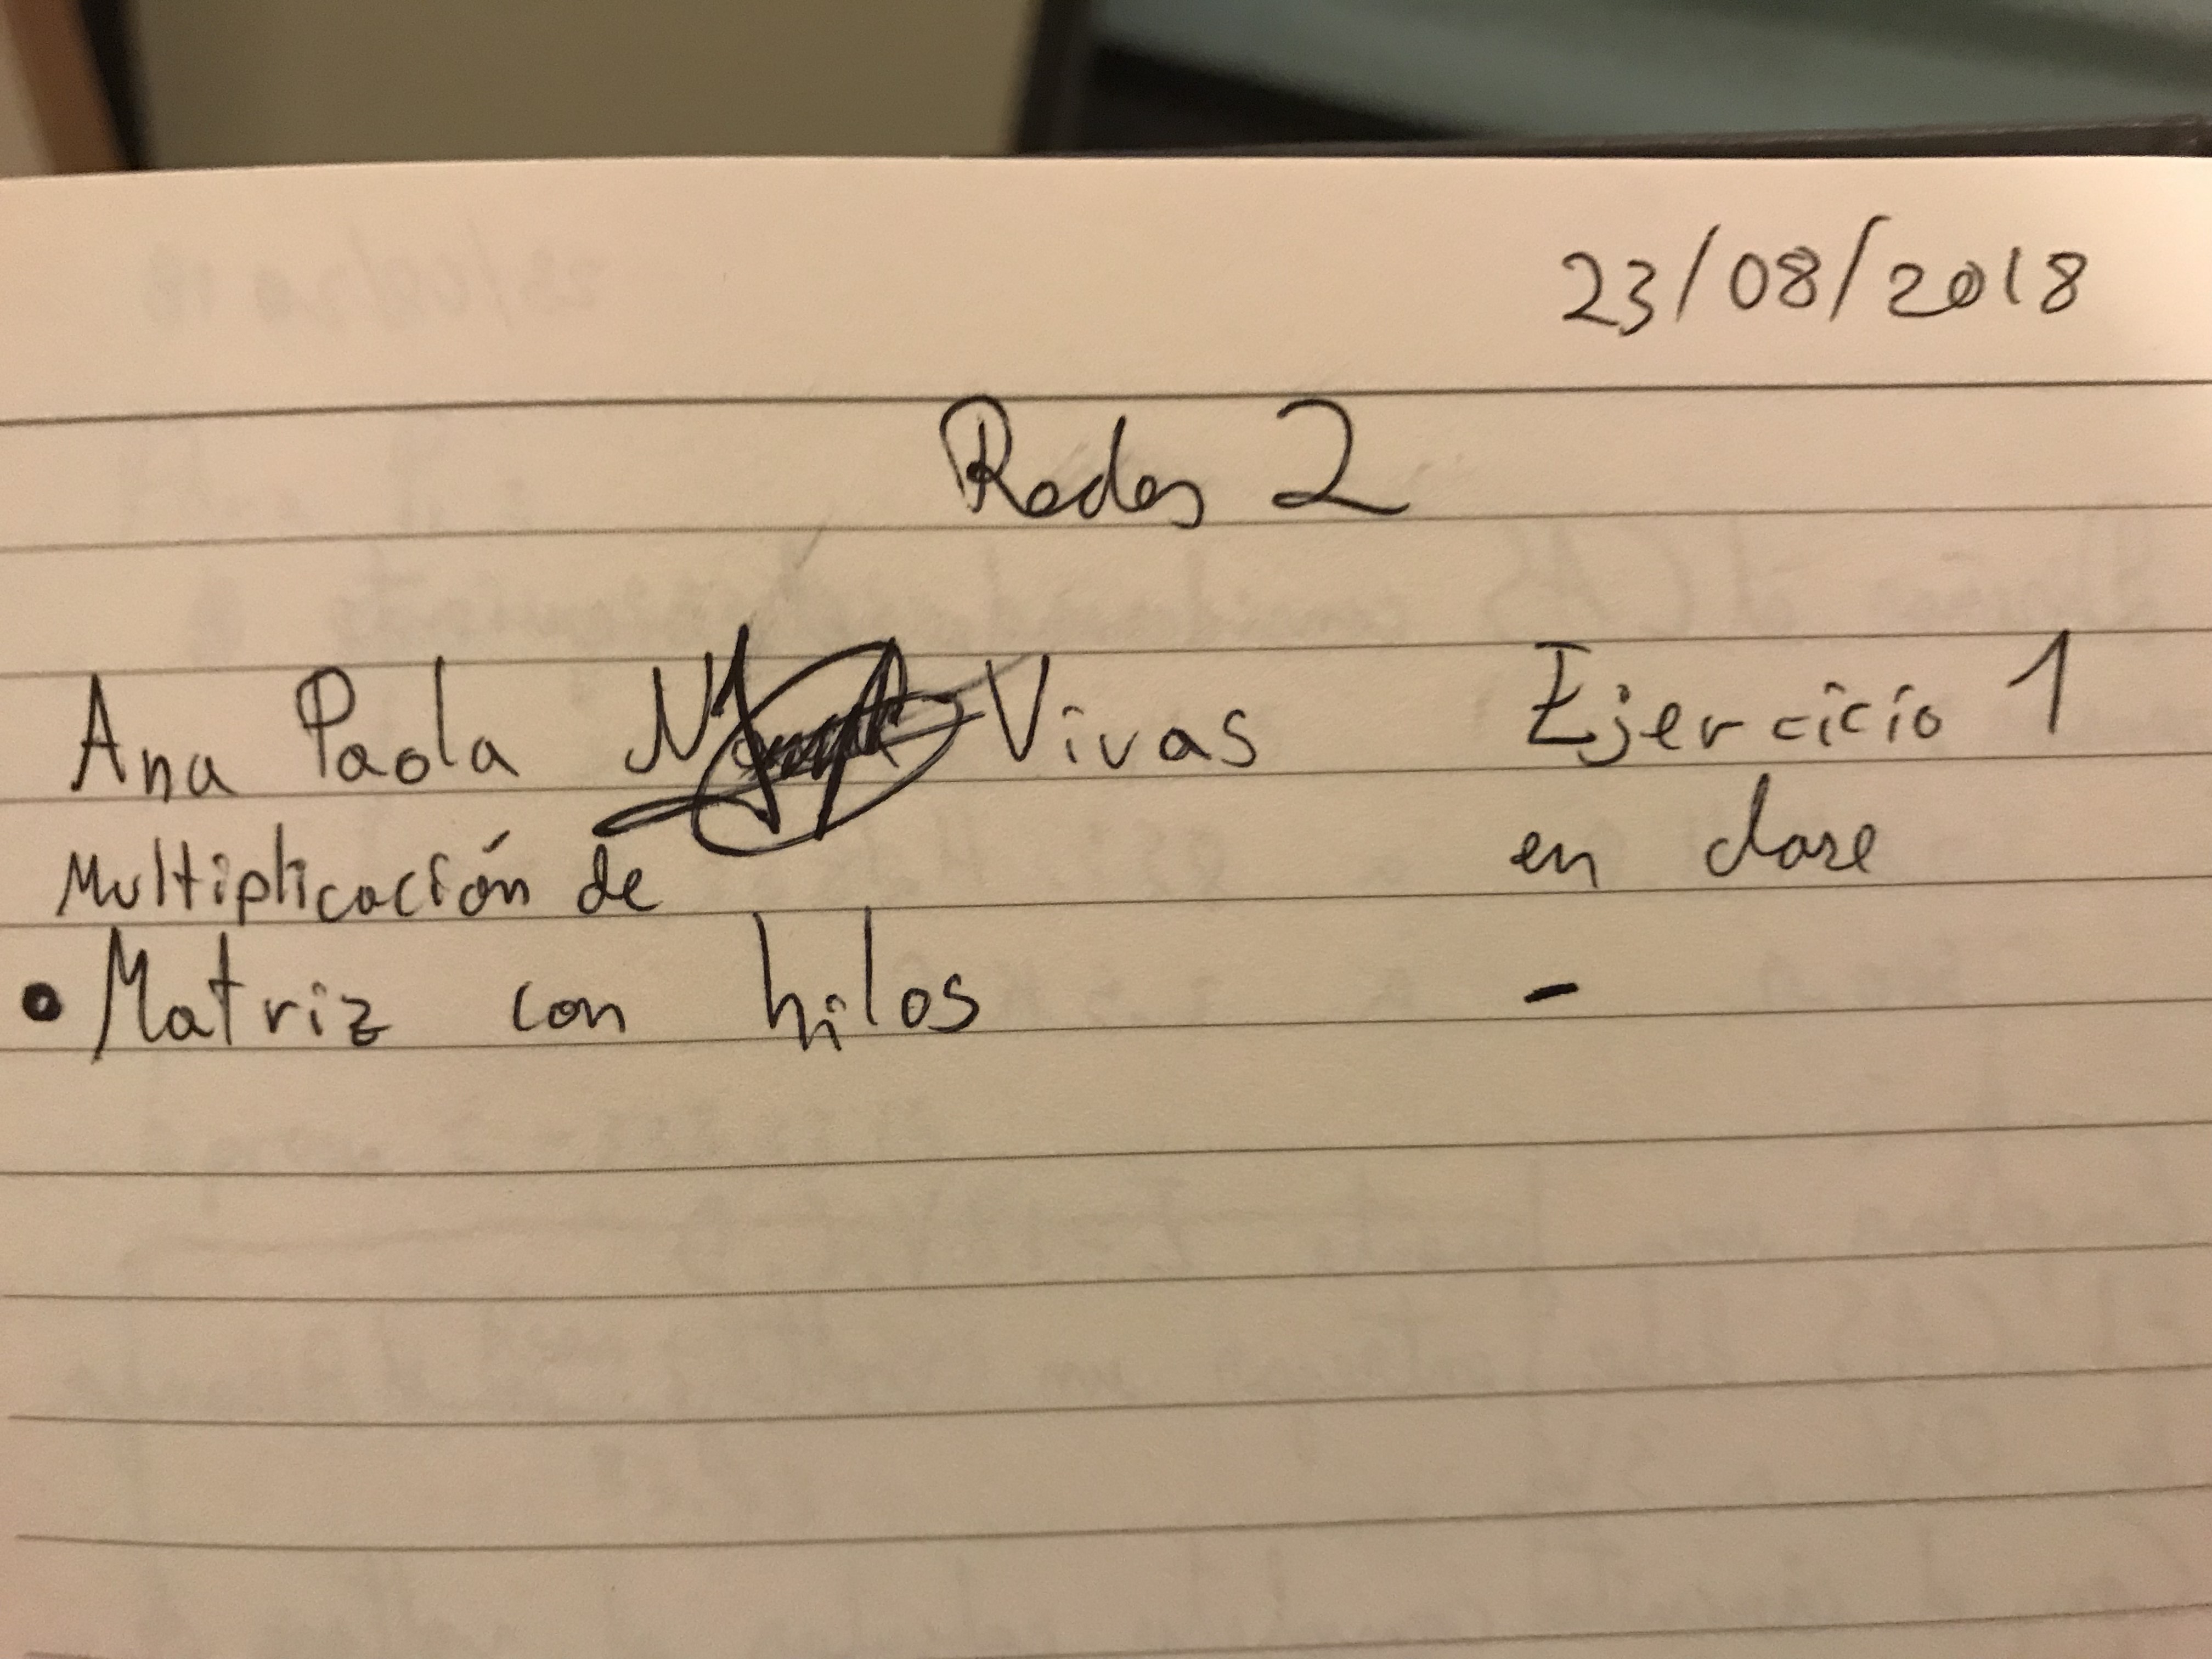 23/08/2018
Redes 2
Ana Paola Vivas Ejercicio 1
Multiplicación de en clase
• Matriz con hilos -